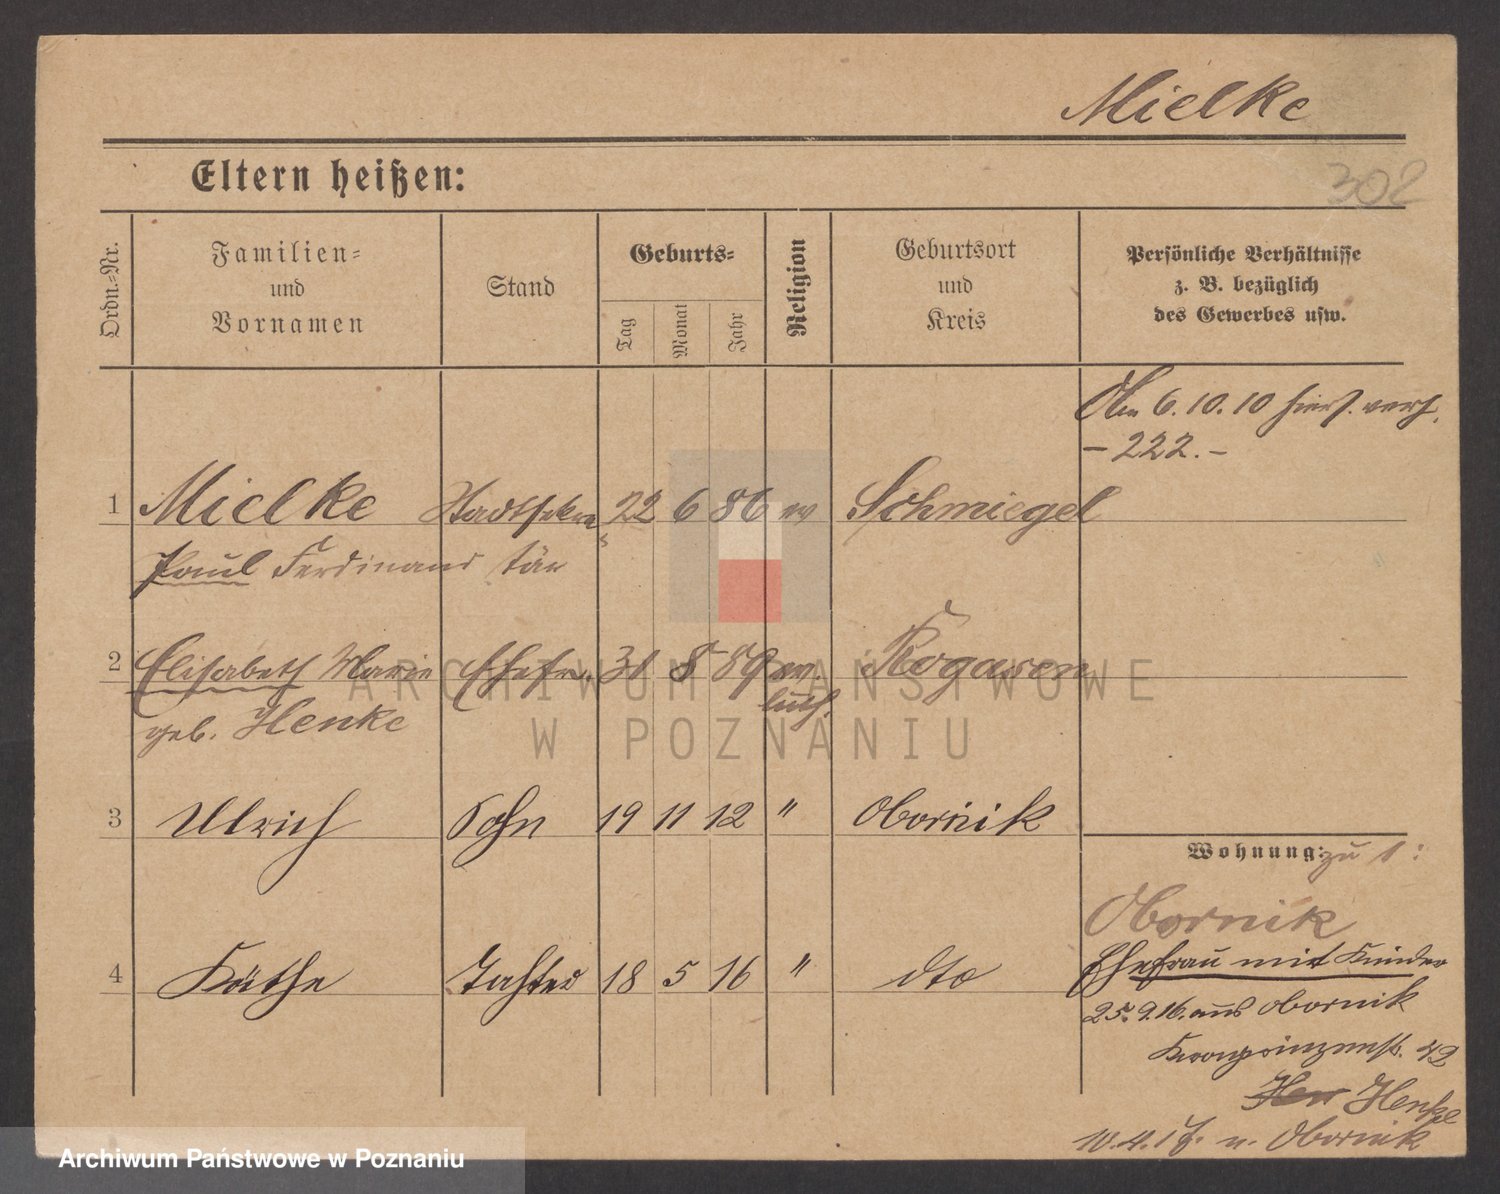 Mielke
302
Eltern heißen:
Ordn.-Nr.
Familien-
und
Vornamen
Stand
Geburts-
Tag
Monat
Jahr
Religion
Geburtsort
und
Kreis
Persönliche Verhältnisse
z. B. bezüglich
des Gewerbes usw.
6.10.10 hiers. verh.
- 222. -
1 Mielke Stadtsekre 22 6 86 ev Schmiegel
Paul Ferdinand tär
2 Elisabeth Marie Ehefr. 31 8 89 ev. Rogasen
luth.
geb. Henke
3 Ulrich Sohn 19 11 12 " Obornik
Wohnung: zu 1:
Obornik
4 Käthe Tochter 18 5 16 " dto
Ehefrau mit Kinder
25.9.16. aus Obornik
Kronprinzenstr. 42
Herr Henke
10.4.17. n. Obornik
ARCHIWUM PAŃSTWOWE
W POZNANIU
Archiwum Państwowe w Poznaniu